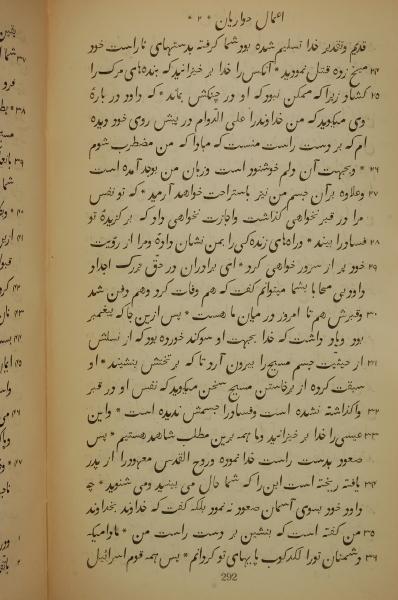 اعمال حواریان * ۲ *
قدیم وتقدیر خدا تسلیم شده بود شما گرفته بدستهای ناراست خود
میخ زده قتل نمودید * آنکس را خدا بر خیزانید که بندهای مرک را ۲۴
کشاد زیرا که ممکن نبود که او در چنکش بماند * که داود در بارهٔ ۲۵
وی میکوید که من خداوند را علی الدوام در پیش روی خود دیده
ام که بر دست راست منست که مبادا که من مضطرب شوم
۲۶ * وبجهت آن دلم خوشنود است وزبان من بوجد آمده است
۲۷ وعلاوه بر آن جسم من نیز باستراحت خواهد آرمید * که تو نفس
مرا در قبر نخواهی کذاشت واجازت نخواهی داد که بر کزیدهٔ تو
۲۸ فساد را بیند * وراههای زنده کی را بمن نشان دادهٔ ومرا از رویت
۲۹ خود پر از سرور خواهی کرد * ای برادران در حق بزرک اجداد
داود بی محابا بشما میتوانم کفت که هم وفات کرد وهم دفن شد
۳۰ وقبرش هم تا امروز در میان ما هست * پس ازین جا که پیغمبر
بود ویاد داشت که خدا بجهت او سوکند خورده بود که از نسلش
۳۱ از حیثیت جسم مسیح را بیرون آرد تا که بر تختش بنشیند * او
سبقت کرده از برخاستن مسیح سخن میکوید که نفس او در قبر
۳۲ واکذاشته نشده است وفساد را جسمش ندیده است * واین
۳۳ عیسی را خدا بر خیزانید وما همه برین مطلب شاهد هستیم * پس
صعود بدست راست خدا نموده وروح القدس معهود را از پدر
۳۴ یافته ریخته است این را که شما حال می بینید ومی شنوید * چه
داود خود بسوی آسمان صعود نه نمود بلکه کفت که خداوند بخداوند
۳۵ من کفته است که بنشین بر دست راست من * تا وامیکه
۳۶ دشمنان تو را لکدکوب پایهای تو کردانم * پس همه قوم اسرائیل
292